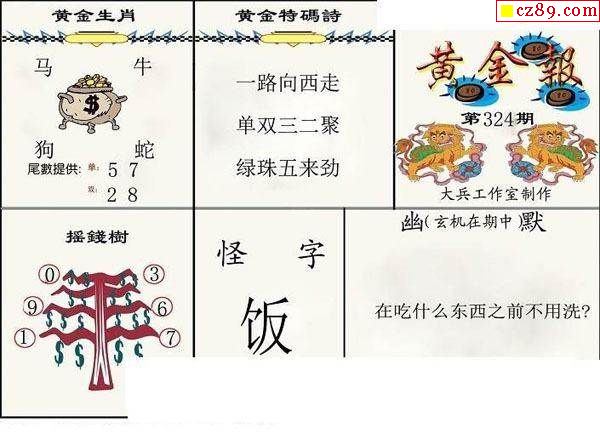 cz89.com
黄金生肖
马 牛
$
狗 蛇
尾數提供: 单: 5 7
双: 2 8
黄金特碼詩
一路向西走
单双三二聚
绿珠五来劲
黄金報
第324期
大兵工作室制作
摇錢樹
0 3
9 6
1 7
$ $ $ $ $ $ $ $
怪 字
饭
幽(玄机在期中)默
在吃什么东西之前不用洗?